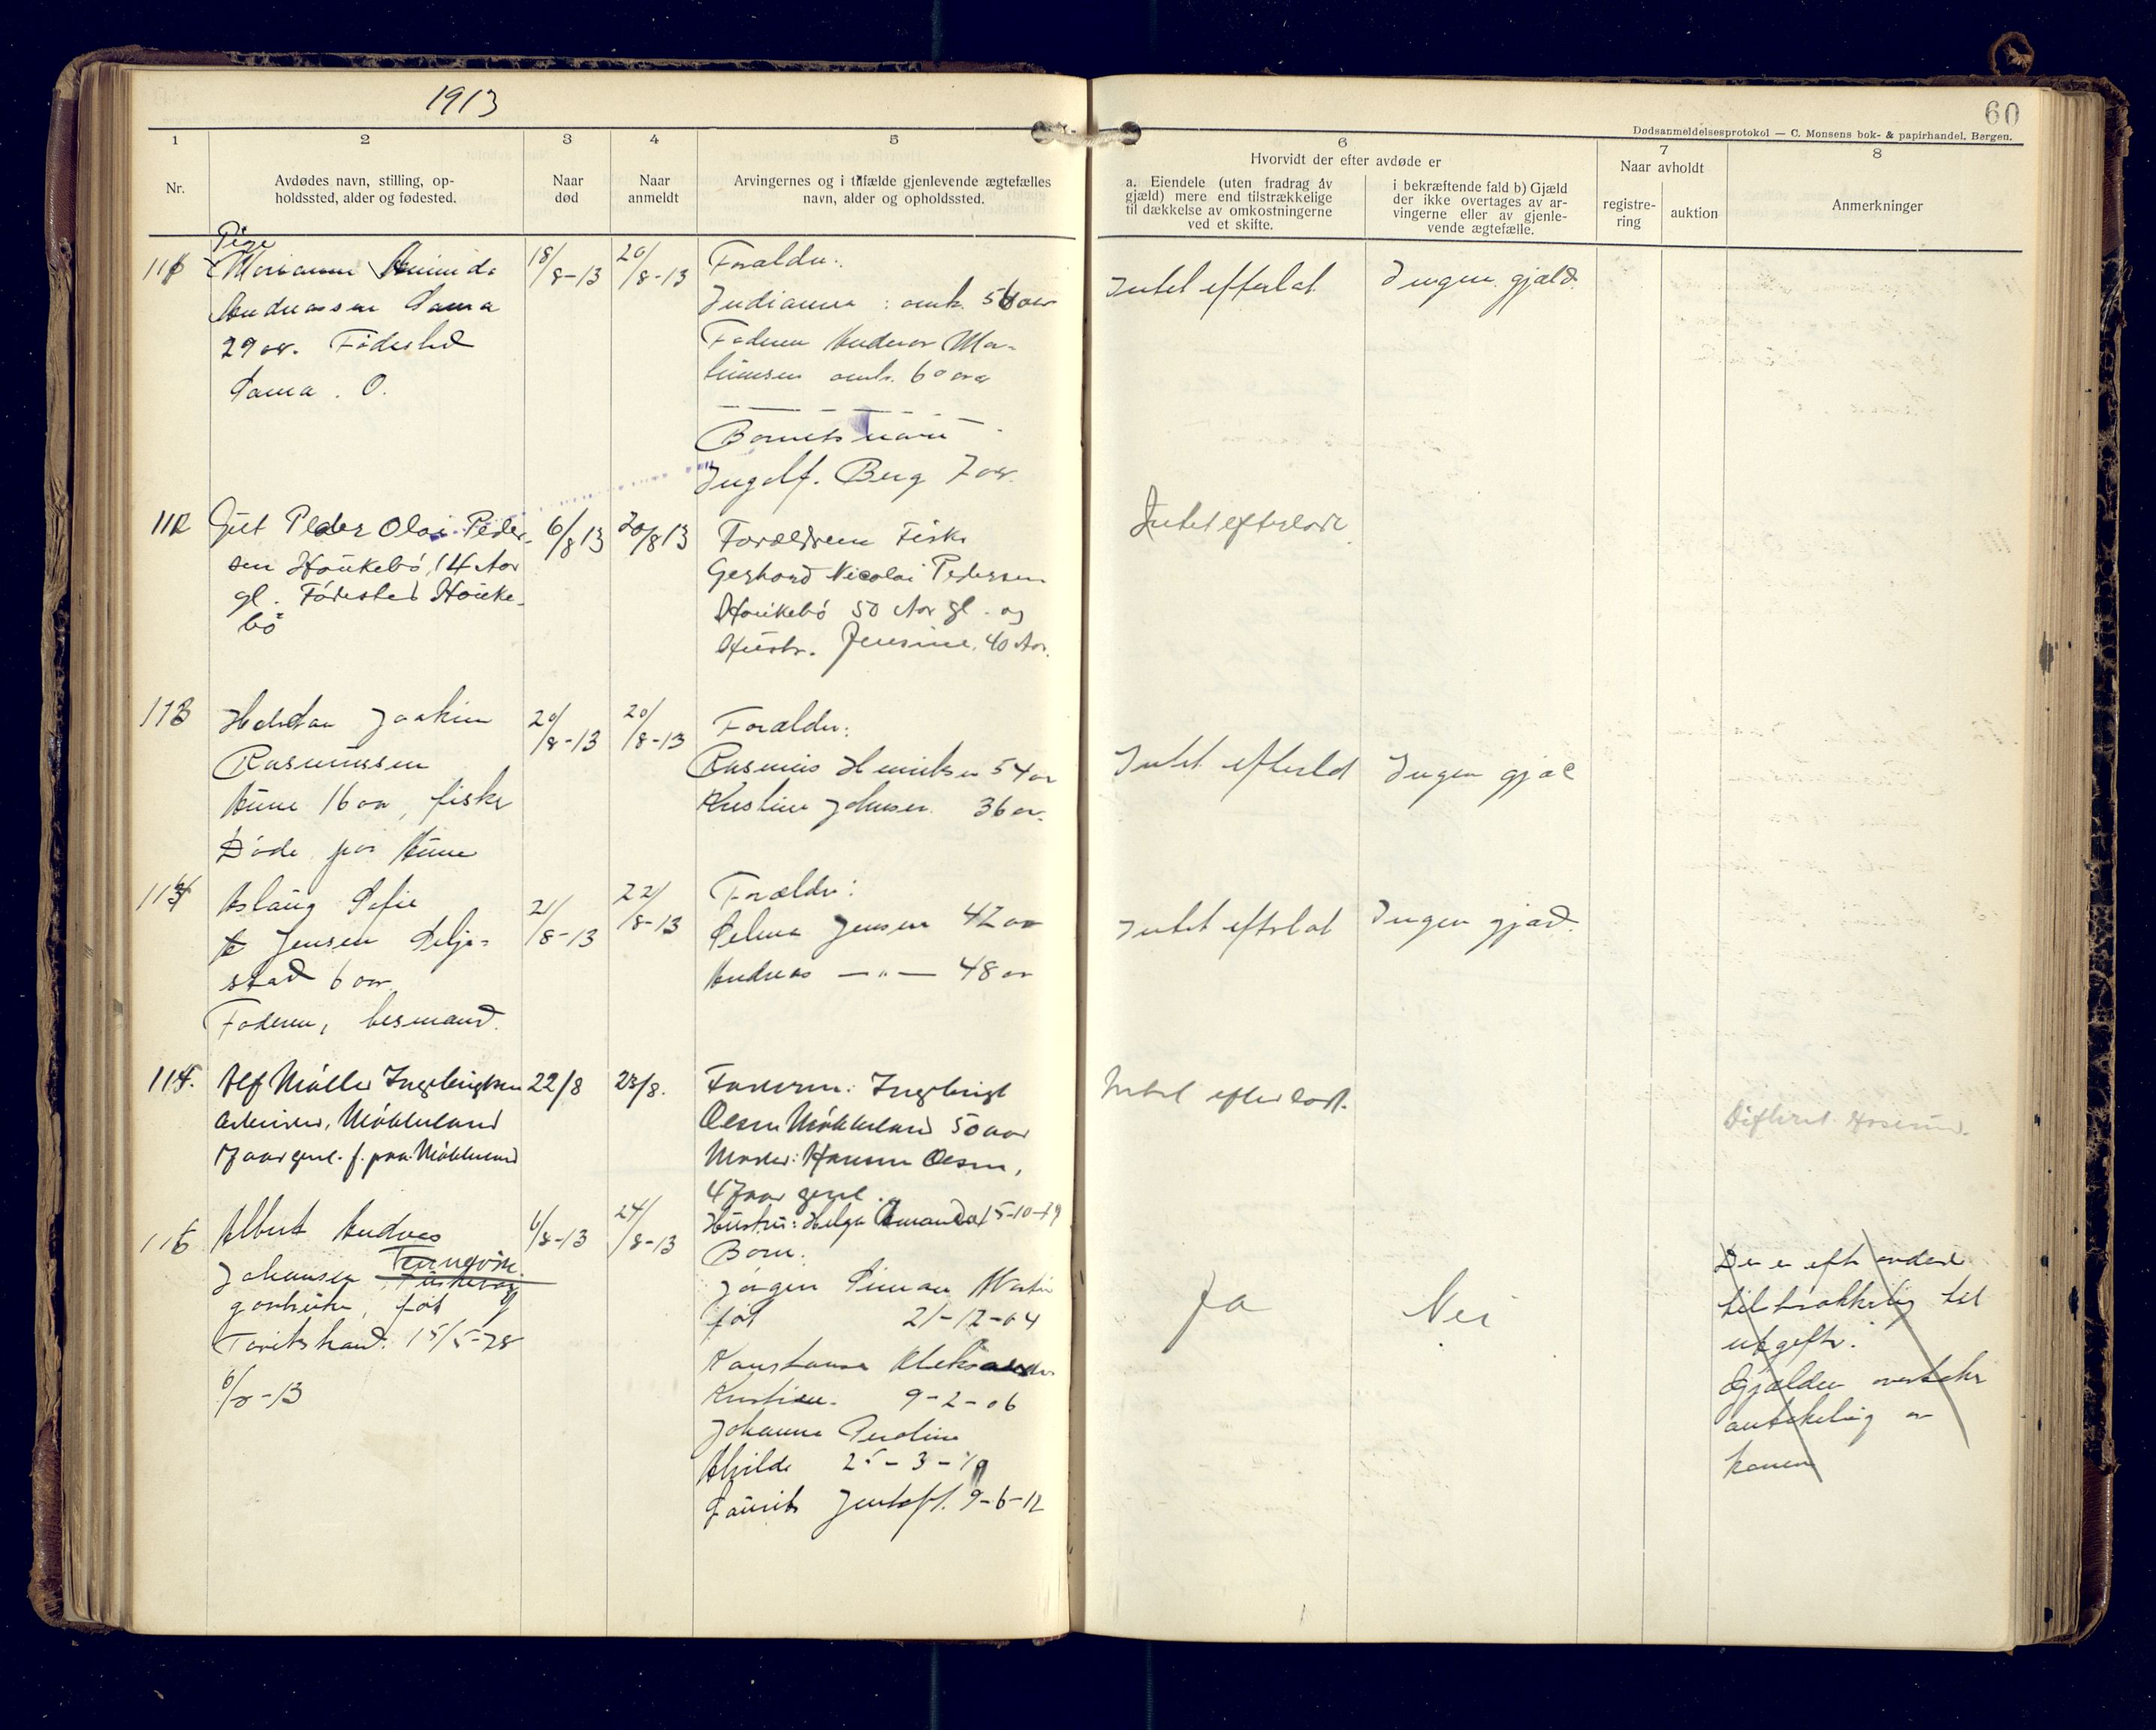 1913
60
Dødsanmeldelsesprotokol — C. Monsens bok- & papirhandel, Bergen.
1
2
3
4
5
6
7
8
Nr.
Avdødes navn, stilling, op-
holdssted, alder og fødested.
Naar
død
Naar
anmeldt
Arvingernes og i tilfælde gjenlevende ægtefælles
navn, alder og opholdssted.
Hvorvidt der efter avdøde er
a. Eiendele (uten fradrag av
gjæld) mere end tilstrækkelige
til dækkelse av omkostningerne
ved et skifte.
i bekræftende fald b) Gjæld
der ikke overtages av ar-
vingerne eller av gjenle-
vende ægtefælle.
Naar avholdt
registre-
ring
auktion
Anmerkninger
Pige
Andreassen Sama
29 aar. Fødested
Sama. O.
18/8-13
20/8-13
Forældre:
Indianna : omk. 56 aar
Faderen Andreas Ma-
omk. 60 aar
Barnets navn
Ingolf. Berg 7 aar.
Intet efterlat
Ingen gjæld.
112
Gut Peder Olai Peder-
sen Haukebø, 14 Aar
gl. Fødested Hauke-
bø
6/8 13
20/8 13
Forældrene Fisker
Gerhard Nicolai Pedersen
Haukebø 50 Aar gl. og
Hustr. Jensine, 40 Aar.
Intet efterladt.
113
Halvdan Joakim
Rasmussen
16 aar, fisker
Døde paa
20/8-13
20/8-13
Forældre:
Rasmus Henriksen 54 aar
Kristine Johnsen 36 aar.
Intet efterlat
Ingen gjæl
114
Aslaug Sofie
Jensen Selje-
stad 6 aar.
Faderen, løsmand.
21/8-13
22/8-13
Forældre:
Selma Jensen 42 aar
Andreas — " — 48 aar
Intet efterlat
Ingen gjæld.
115.
Alf Møller Ingebrigtsen
arbeider, Møkkeland
17 aar gml. f. paa Møkkeland
22/8
23/8.
Faderen: Ingebrigt
Olsen Møkkeland 50 aar
Moder: Hansine Olsen,
47 aar gml.
Intet efterladt.
116
Albert Andreas
Johansen
gaardbruker, født
15/5-78
6/8-13
6/8-13
24/8-13
Hustru: Helga Amanda 15-10-79
Børn:
Jørgen Simon Martin
født 21-12-04
Kristian. 9-2-06
Johanna Perdine
Alvilde 25-3-10
Laurits Jentoft. 9-6-12
Ja
Nei
Der er efter avdøde
tilstrækkelig til
utgifter.
Gjælden overtakes
antakelig av
konen